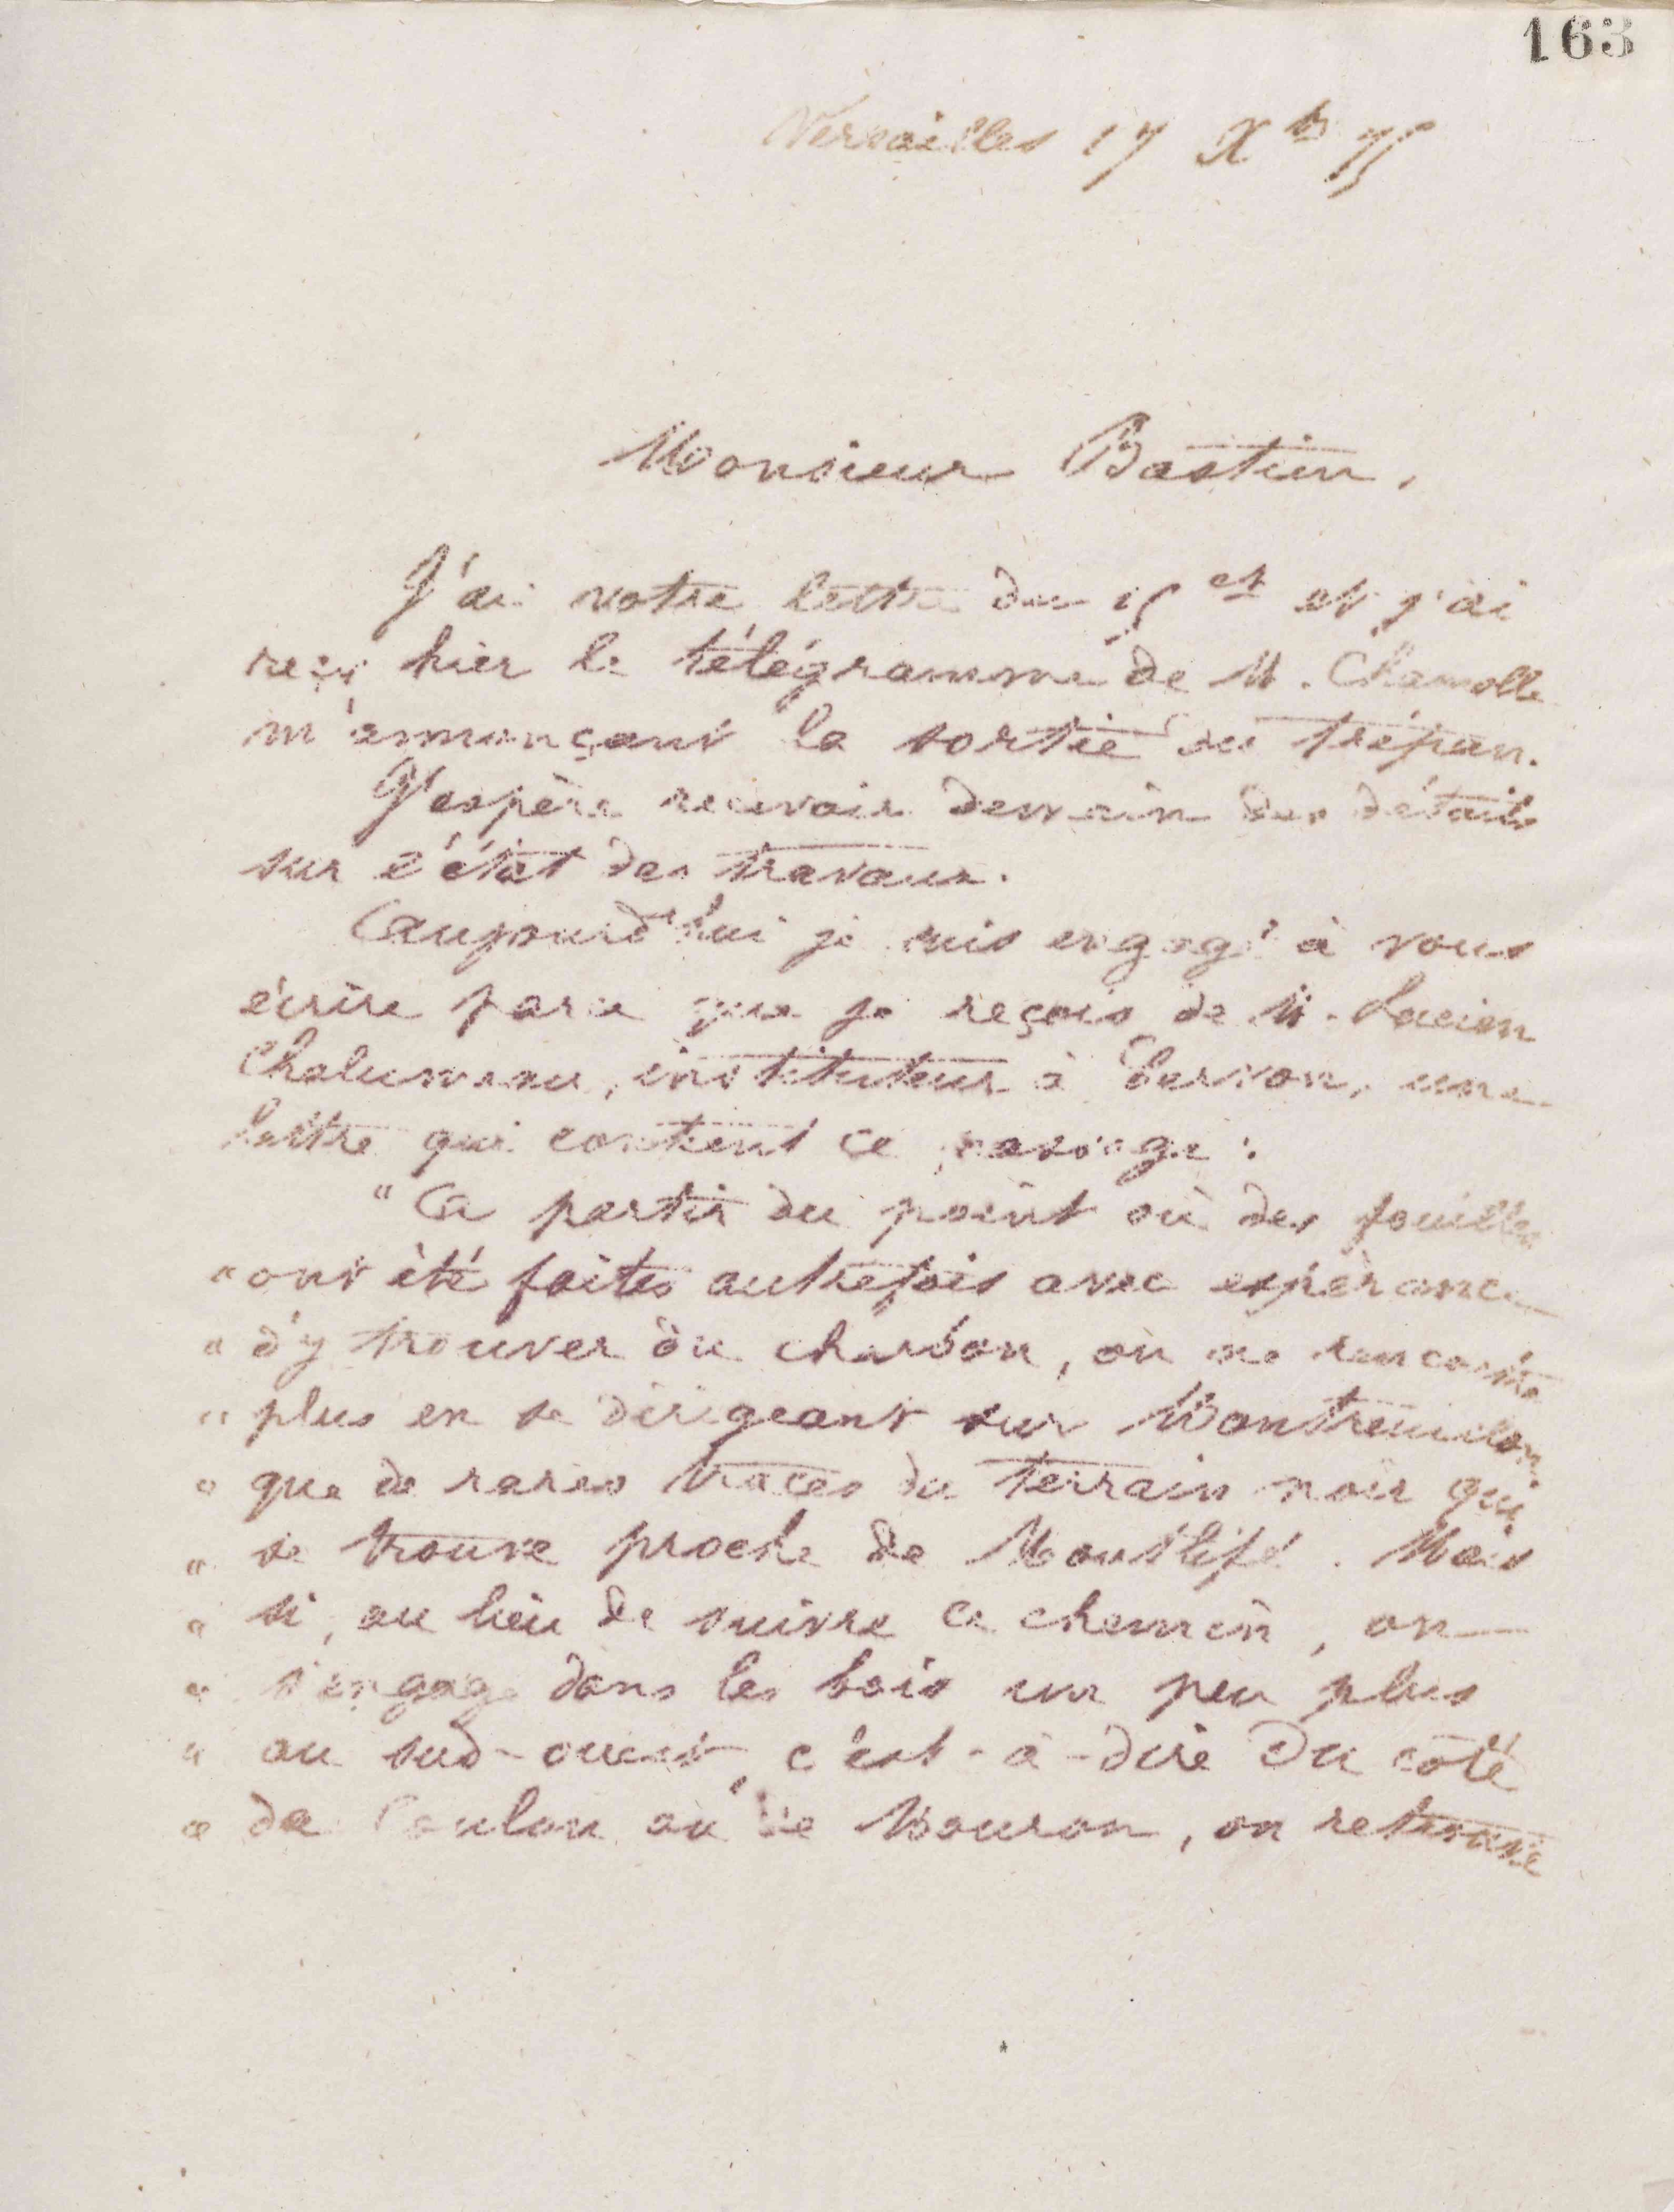 163
Versailles 17 Xbre 75
Monsieur Bastien,
J'ai votre lettre du 15 ct et j'ai
reçu hier le télégramme de M. Chamolle
m'annonçant la sortie du trépan.
J'espère recevoir demain des détails
sur l'état des travaux.
Aujourd'hui je suis engagé à vous
écrire parce que je reçois de M. Lucien
Chalumeau, instituteur à Cervon, une
lettre qui contient ce passage :
"A partir du point où des fouilles
" ont été faites autrefois avec espérance
" d'y trouver du charbon, on ne rencontre
" plus en se dirigeant sur Montreuillon
" que de rares traces du terrain noir qui
" se trouve proche de Moustifé. Mais
" si, au lieu de suivre ce chemin, on
" s'engage dans les bois un peu plus
" au sud-ouest, c'est-à-dire du côté
" de Coulon ou de Mouron, on retrouve